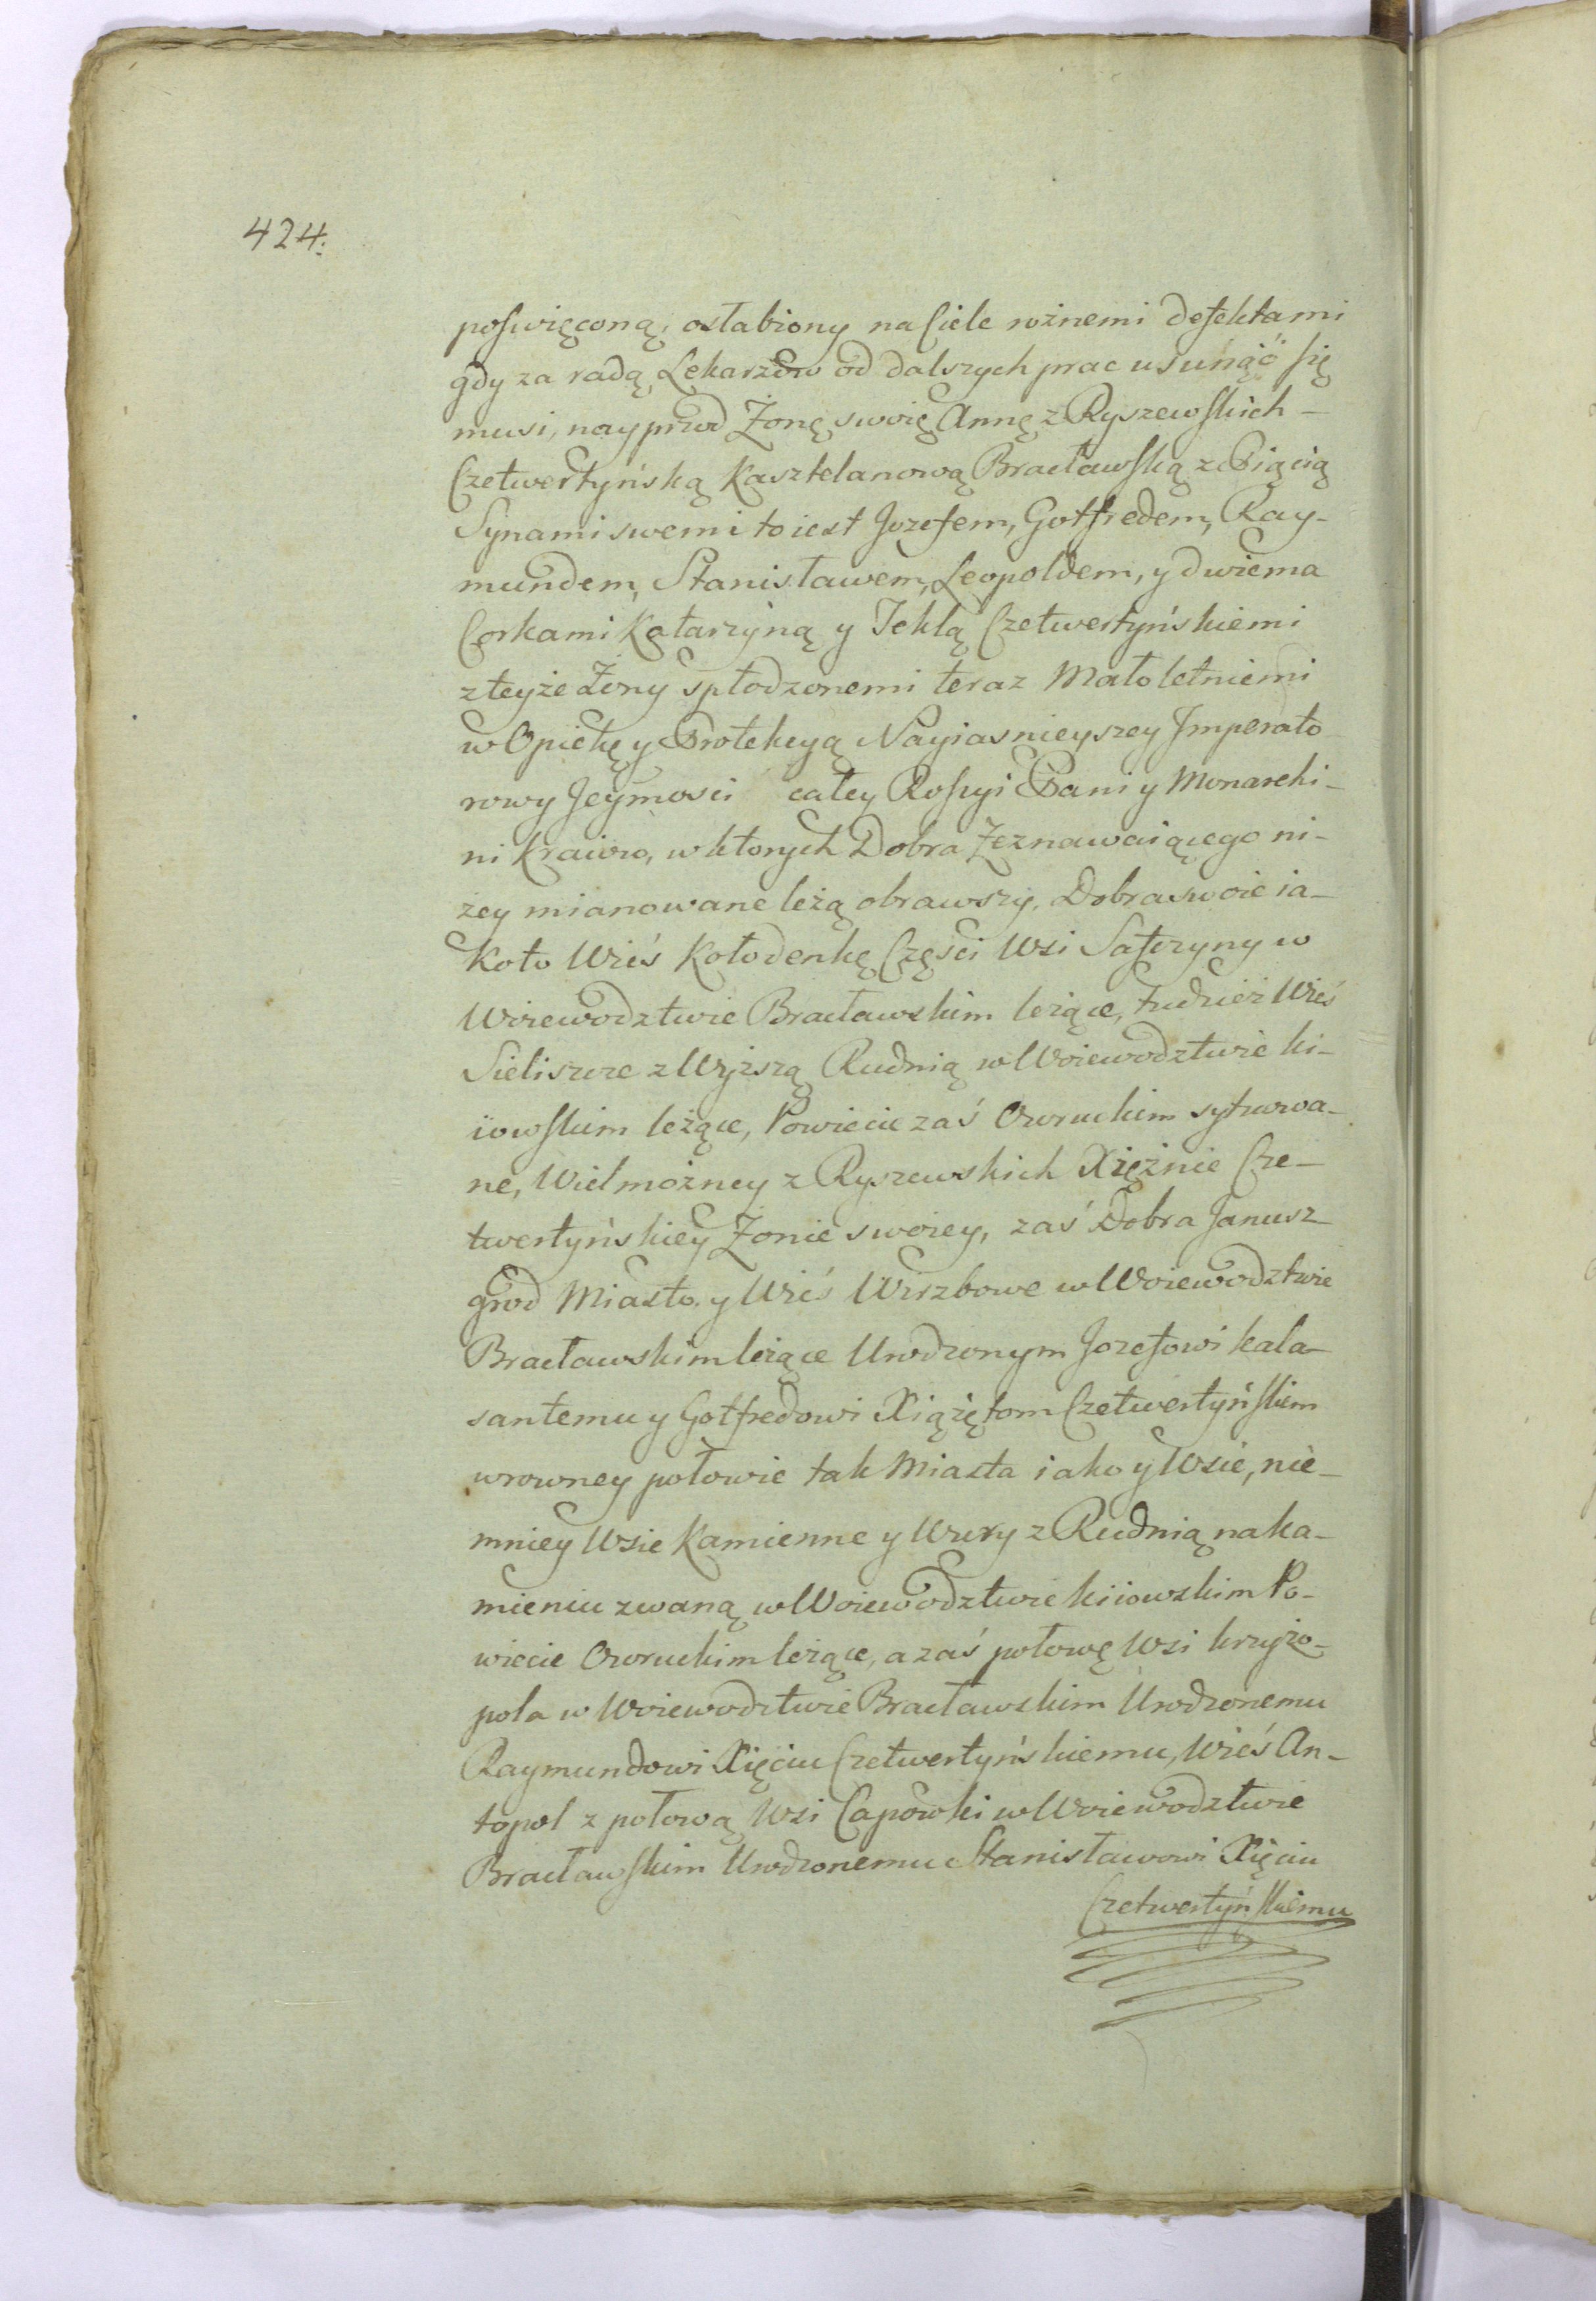 424.
poswięconą, osłabiony na Ciele rożnemi defektami
gdy za radą Lekarzow od dalszych prac usunąć się
musi, nayprwd Żonę swoię Annę z Ryszewskich –
Czetwertyńską Kasztelanową Bracławską z Pięcią
Synami swemi to iest Jozefem, Gotfredem, Ray-
mundem, Stanisławem, Leopoldem, y dwiema
Corkami Katarzyną y Teklą Czetwertyńskiemi
z teyże Żony spłodzonemi teraz Małoletniemi
w Opiekę y Protekcyą Nayiasnieyszey Imperato-
rowy Jeymosci całey Rossyi Pani y Monarchi-
ni Kraiow, w ktorych Dobra Zeznawaiącego ni-
żey mianowane leżą obrawszy, Dobra swoie ia-
koto Wieś Kołodenkę Części Wsi Satczyny w
Woiewodztwie Bracławskim leżące, tudzież Wieś
Sieliszcze z Wyższą Rudnią w Woiewodztwie Ki-
iowskim leżące, Powiecie zaś Owruckim sytuowa-
ne, Wielmożney z Ryszewskich Xiężnie Cze-
twertyńskiey Żonie swoiey, zaś Dobra Janusz-
grod Miasto y Wieś Wierzbowe w Woiewodztwie
Bracławskim leżące Urodzonym Jozefowi Kala-
santemu y Gotfredowi Xiążętom Czetwertyńskim
w rowney połowie tak Miasta iako y Wsie, nie-
mniey Wsie Kamienne y z Rudnią na Ka-
mieniu zwaną w Woiewodztwie Kiiowskim Po-
wiecie Owruckim leżące, a zaś połowę Wsi Krzyżo-
pola w Woiewodztwie Bracławskim Urodzonemu
Raymundowi Xięciu Czetwertyńskiemu, Wieś An-
topol z połową Wsi Capowki w Woiewodztwie
Bracławskim Urodzonemu Stanisławowi Xięciu
Czetwertyńskiemu